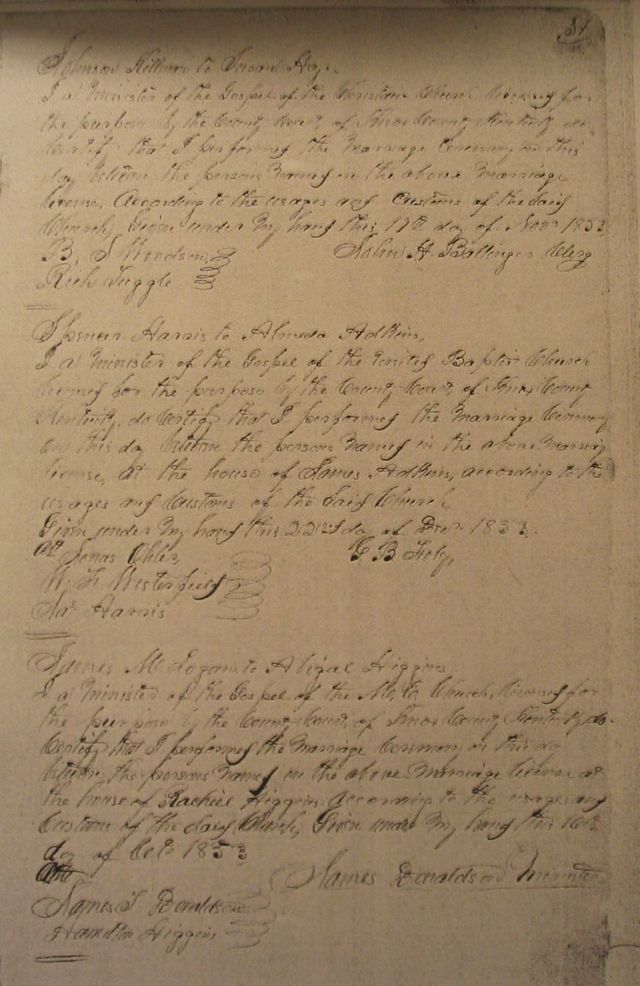 Johnson Hillman to Susan Hays.
I a Minister of the Gospel of the Christian Church licensed for
the purpose by the County Court of Knox County Kentucky do
Certify that I performed the Marriage Ceremony on this
day between the persons named in the above marriage
license, According to the usages and Customs of the said
Church, Given under My hand this 17th day of Novr 1853
B. S. Woodson
John H. Ballinger Clerg
Rich Tuggle
Spencer Harris to Almeda Adkins,
I a Minister of the Gospel of the United Baptist Church
licensed for the purpose by the County Court of Knox County
Kentucky, do Certify that I performed the Marriage Ceremony
on this day between the persons Named in the above Marriage
license, at the house of James Adkins, according to the
usages and Customs of the said Church,
Given under My hand this 22nd day of Decr 1853.
G B Foley,
Jonas
W. F. Westerfield
Jas Harris
James to Abigal Higgins
I a Minister of the Gospel of the M. E. Church, licensed for
the purpose by the County Court, of Knox County Kentucky do
Certify that I performed the Marriage Ceremony on this day
between the persons Named in the above Marriage license at
the house of Rachiel Higgins. According to the usages and
Customs of the said Church, Given under My hand this
day of Oct 1853
Att
James Donaldson Minister
James T Donaldson
Hamilton Higgins